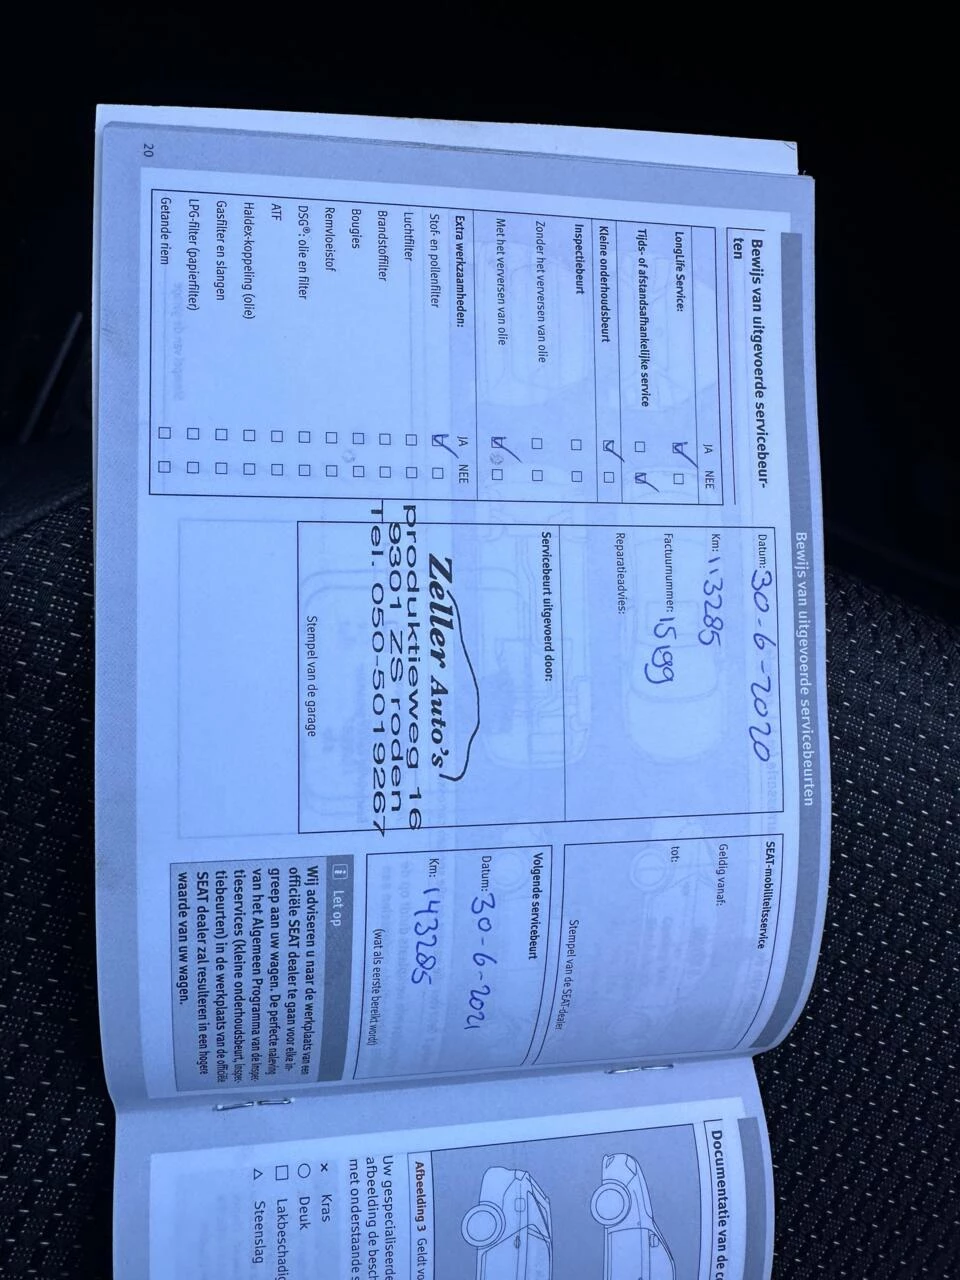 Bewijs van uitgevoerde servicebeurten
Bewijs van uitgevoerde servicebeur-
ten
JA NEE
LongLife Service: ☑ ☐
Tijds- of afstandsafhankelijke service ☐ ☑
Kleine onderhoudsbeurt ☑ ☐
Inspectiebeurt ☐ ☐
Zonder het verversen van olie ☐ ☐
Met het verversen van olie ☑ ☐
Extra werkzaamheden: JA NEE
Stof- en pollenfilter ☑ ☐
Luchtfilter ☐ ☐
Brandstoffilter ☐ ☐
Bougies ☐ ☐
Remvloeistof ☐ ☐
DSG®: olie en filter ☐ ☐
ATF ☐ ☐
Haldex-koppeling (olie) ☐ ☐
Gasfilter en slangen ☐ ☐
LPG-filter (papierfilter) ☐ ☐
Getande riem ☐ ☐
20
Datum: 30-6-2020
Km: 113285
Factuurnummer: 15199
Reparatieadvies:
Servicebeurt uitgevoerd door:
Zeller Auto's
produktieweg 16
9301 ZS roden
Tel. 050-5019267
Stempel van de garage
SEAT-mobiliteitsservice
Geldig vanaf:
tot:
Stempel van de SEAT-dealer
Volgende servicebeurt
Datum: 30-6-2021
Km: 143285
(wat als eerste bereikt wordt)
i Let op
Wij adviseren u naar de werkplaats van een
officiële SEAT dealer te gaan voor elke in-
greep aan uw wagen. De perfecte naleving
van het Algemeen Programma van de Inspec-
tieservices (kleine onderhoudsbeurt, inspec-
tiebeurten) in de werkplaats van de officiële
SEAT dealer zal resulteren in een hogere
waarde van uw wagen.
Documentatie van de
Afbeelding 3 Geldt
Uw gespecialiseerde
afbeelding de
met onderstaande
× Kras
○ Deuk
☐
△ Steenslag